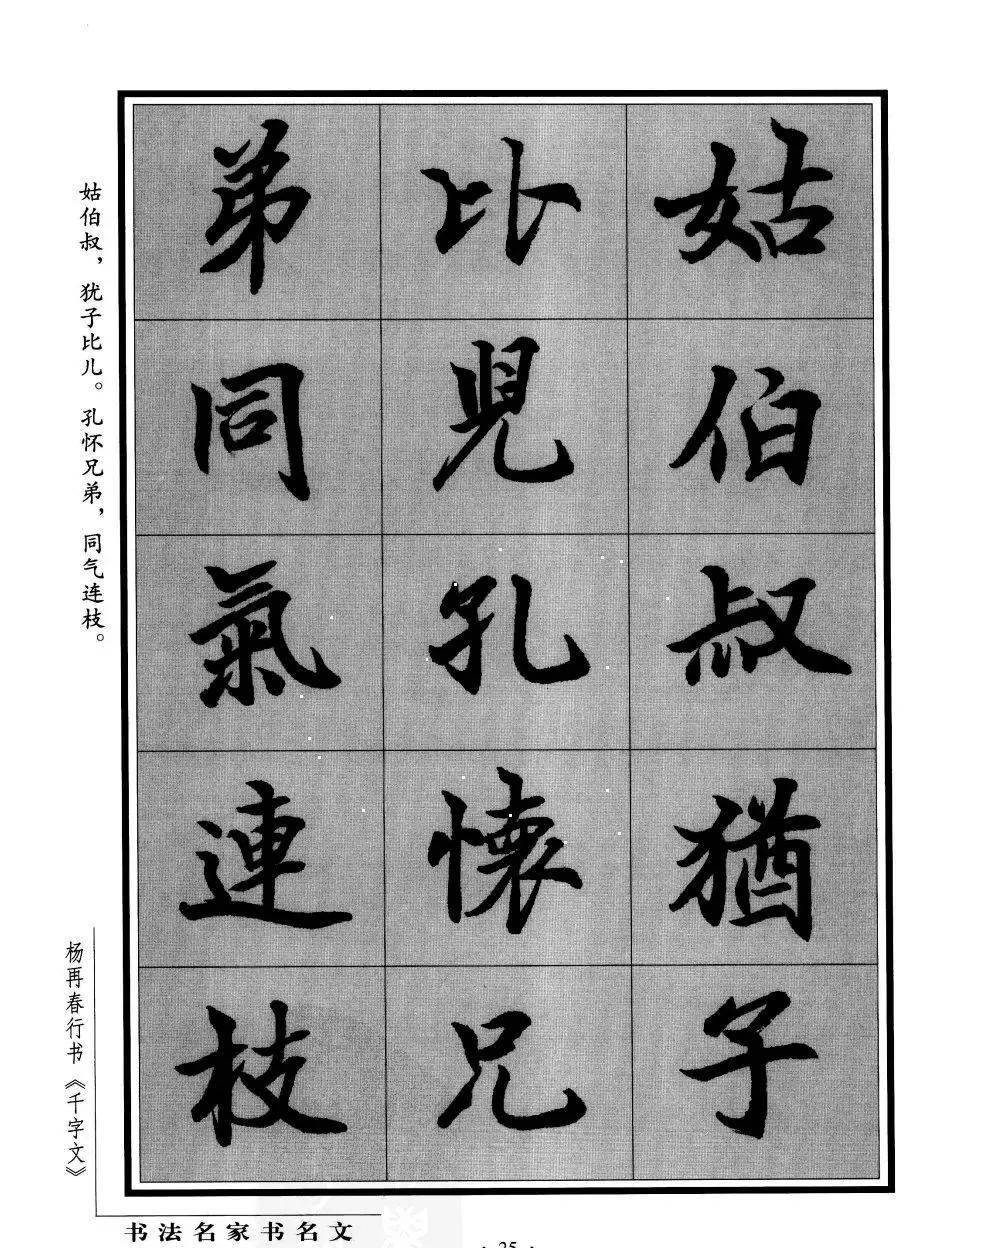 姑伯叔猶子
比兒孔懷兄
弟同氣連枝
姑伯叔，犹子比儿。孔怀兄弟，同气连枝。
杨再春行书《千字文》
书法名家书名文
· 25 ·